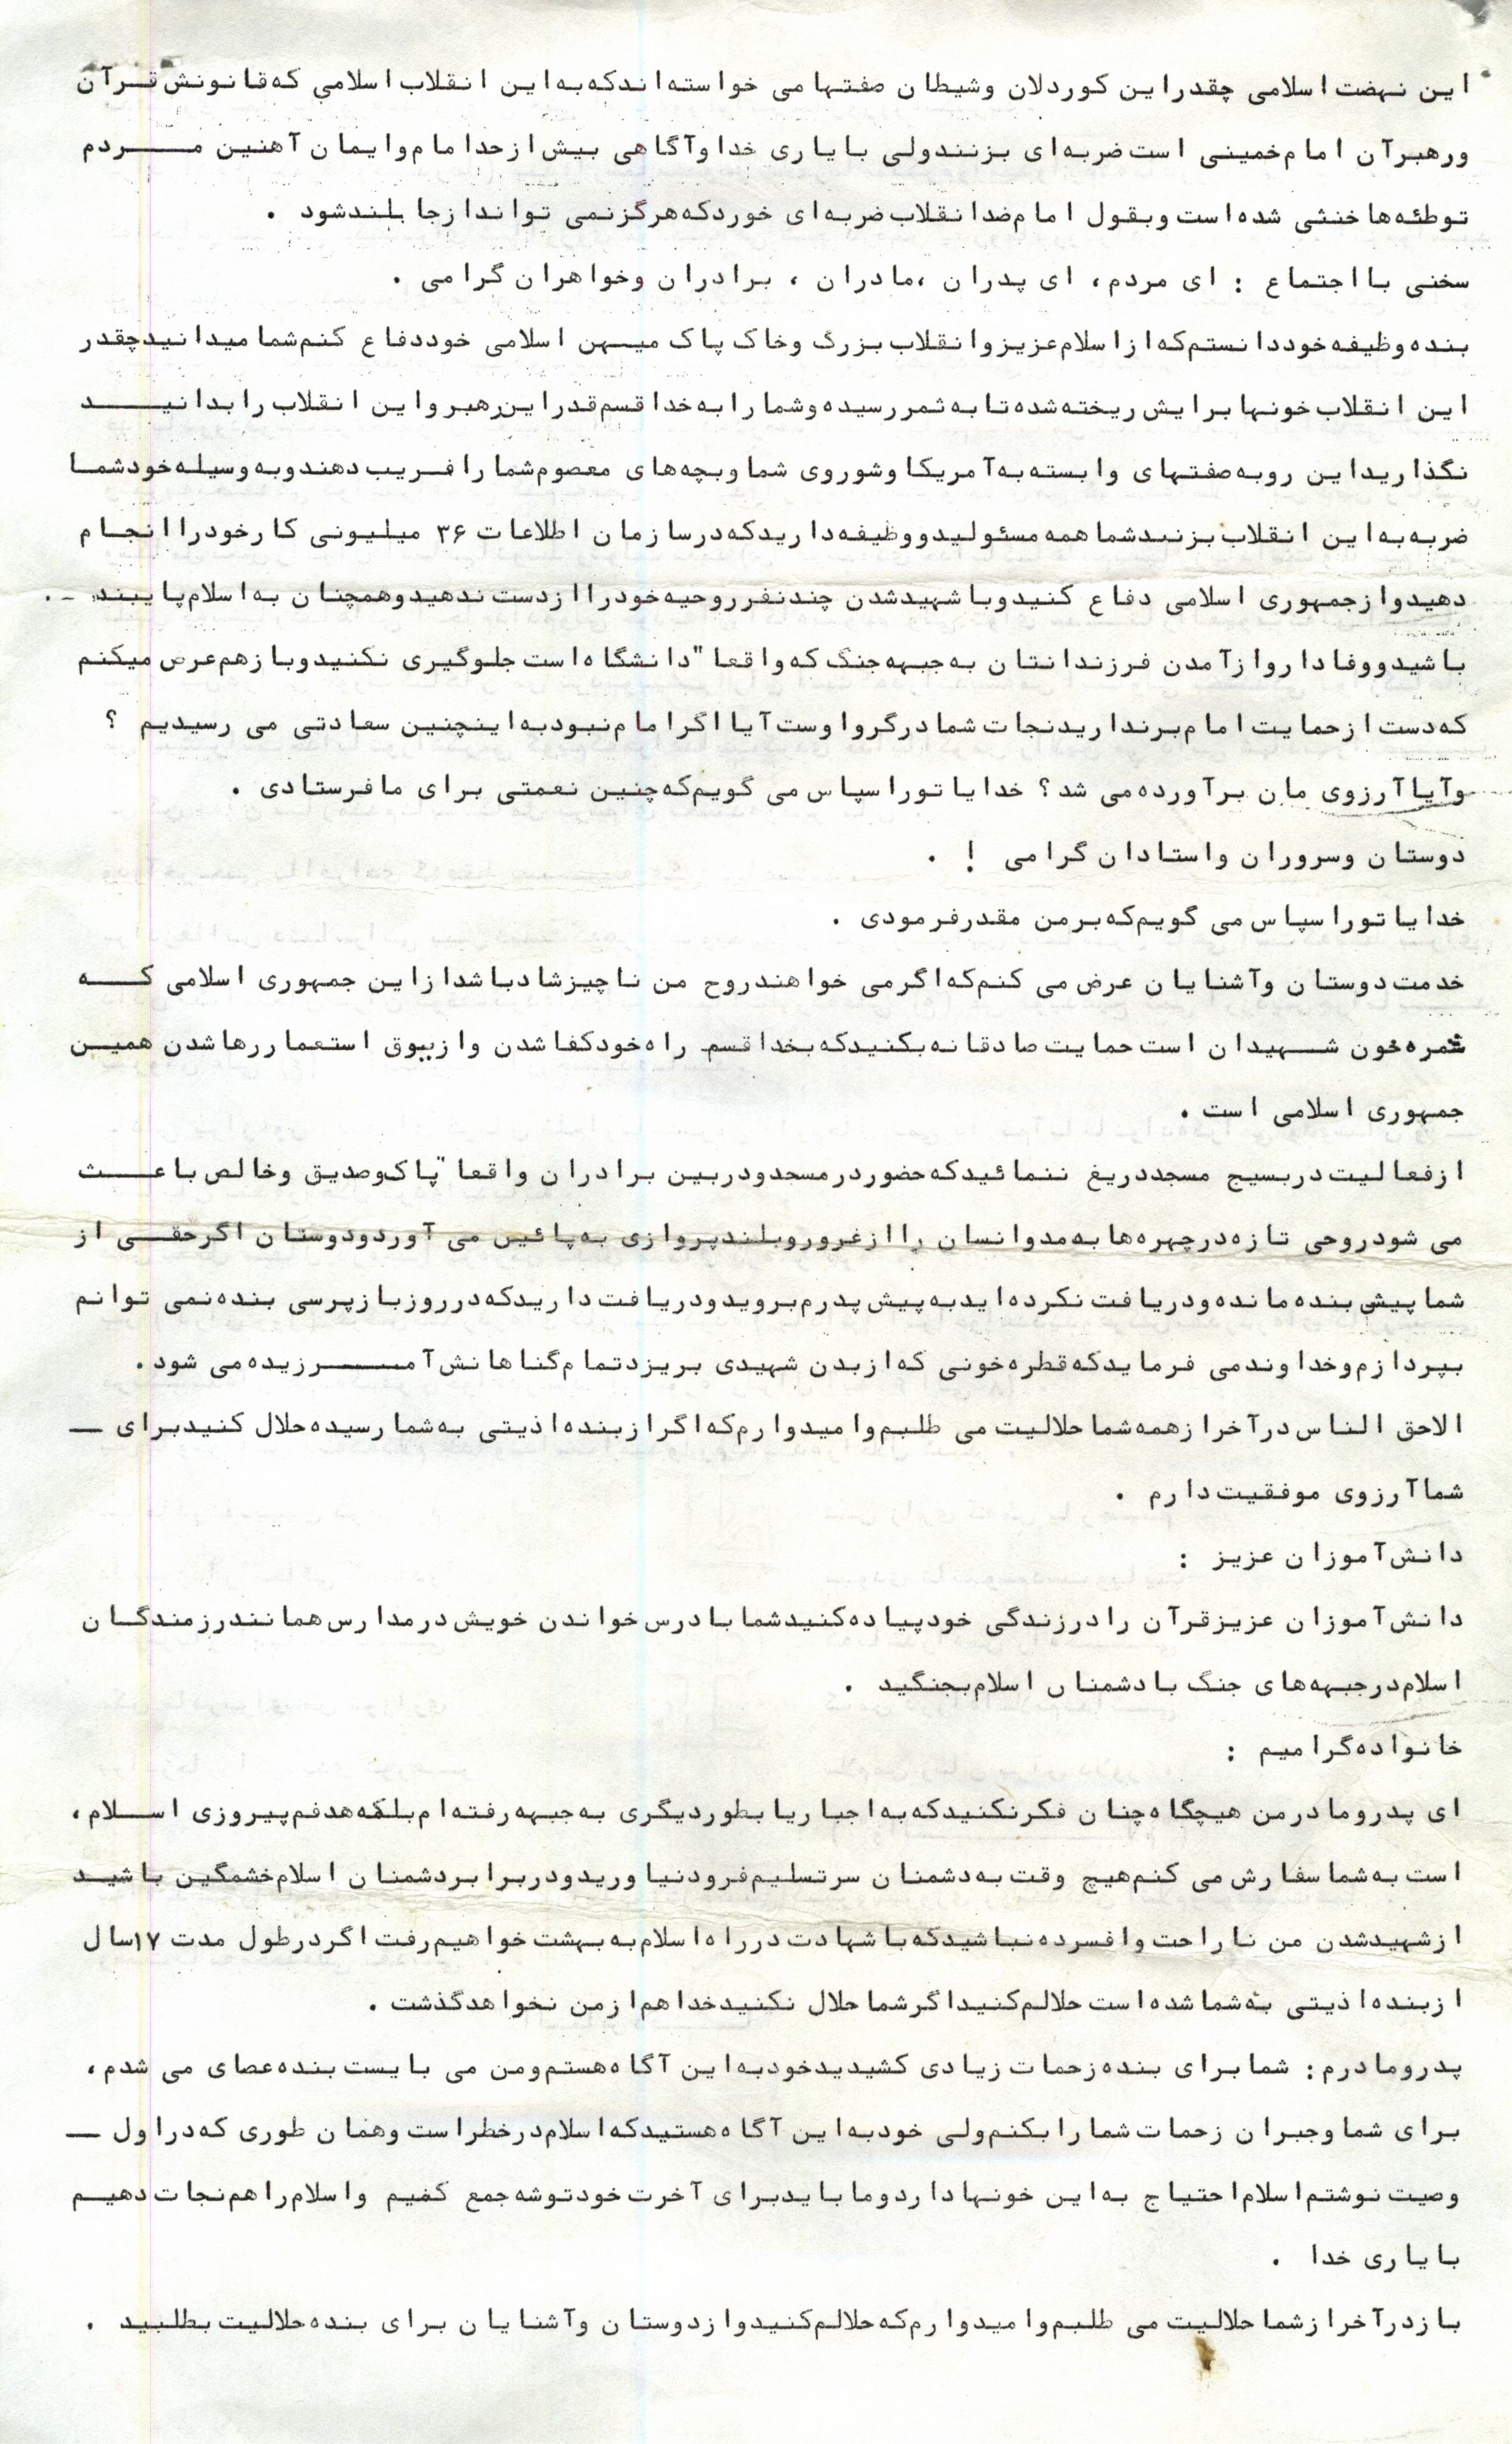 این نهضت اسلامی چقدر این کوردلان وشیطان صفتها می خواسته اند که به این انقلاب اسلامی که قانونش قرآن
ورهبرآن امام خمینی است ضربه ای بزنند ولی با یاری خدا وآگاهی بیش از حد امام وایمان آهنین مردم
توطئه ها خنثی شده است وبقول امام ضدانقلاب ضربه ای خورد که هرگز نمی تواند از جا بلند شود .
سخنی با اجتماع : ای مردم، ای پدران ،مادران ، برادران وخواهران گرامی .
بنده وظیفه خود دانستم که از اسلام عزیز وانقلاب بزرگ وخاک پاک میهن اسلامی خود دفاع کنم شما میدانید چقدر
این انقلاب خونها برایش ریخته شده تا به ثمر رسیده وشما را به خدا قسم قدر این رهبر واین انقلاب را بدانید
نگذارید این روبه صفتهای وابسته به آمریکا وشوروی شما وبچه های معصوم شما را فریب دهند وبه وسیله خود شما
ضربه به این انقلاب بزنند شما همه مسئولید ووظیفه دارید که در سازمان اطلاعات ۳۶ میلیونی کار خود را انجام
دهید واز جمهوری اسلامی دفاع کنید وبا شهید شدن چند نفر روحیه خود را از دست ندهید وهمچنان به اسلام پایبند - .
باشید ووفادار واز آمدن فرزندانتان به جبهه جنگ که واقعا" دانشگاه است جلوگیری نکنید وباز هم عرض میکنم
که دست از حمایت امام برندارید نجات شما در گرو اوست آیا اگر امام نبود به اینچنین سعادتی می رسیدیم ؟
وآیا آرزوی مان برآورده می شد ؟ خدایا تورا سپاس می گویم که چنین نعمتی برای ما فرستادی .
دوستان وسروران واستادان گرامی ! .
خدایا تورا سپاس می گویم که برمن مقدر فرمودی .
خدمت دوستان وآشنایان عرض می کنم که اگر می خواهند روح من ناچیز شاد باشد از این جمهوری اسلامی که
ثمره خون شهیدان است حمایت صادقانه بکنید که بخدا قسم راه خودکفا شدن واز یوق استعمار رها شدن همین
جمهوری اسلامی است .
از فعالیت در بسیج مسجد دریغ ننمائید که حضور در مسجد ودر بین برادران واقعا" پاک وصدیق وخالص باعث
می شود روحی تازه در چهره ها بدمد وانسان را از غرور وبلندپروازی به پائین می آورد ودوستان اگر حقی از
شما پیش بنده مانده ودریافت نکرده اید به پیش پدرم بروید ودریافت دارید که در روز بازپرسی بنده نمی توانم
بپردازم وخداوند می فرماید که قطره خونی که از بدن شهیدی بریزد تمام گناهانش آمرزیده می شود .
الاحق الناس در آخر از همه شما حلالیت می طلبم وامیدوارم که اگر از بنده اذیتی به شما رسیده حلال کنید برای —
شما آرزوی موفقیت دارم .
دانش آموزان عزیز :
دانش آموزان عزیز قرآن را در زندگی خود پیاده کنید شما با درس خواندن خویش در مدارس همانند رزمندگان
اسلام در جبهه های جنگ با دشمنان اسلام بجنگید .
خانواده گرامیم :
ای پدر ومادر من هیچگاه چنان فکر نکنید که به اجبار یا بطور دیگری به جبهه رفته ام بلکه هدفم پیروزی اسلام ،
است به شما سفارش می کنم هیچ وقت به دشمنان سر تسلیم فرود نیاورید ودر برابر دشمنان اسلام خشمگین باشید
از شهید شدن من ناراحت وافسرده نباشید که با شهادت در راه اسلام به بهشت خواهیم رفت اگر در طول مدت ۱۷سال
از بنده اذیتی به شما شده است حلالم کنید اگر شما حلال نکنید خدا هم از من نخواهد گذشت .
پدر ومادرم : شما برای بنده زحمات زیادی کشیدید خود به این آگاه هستم ومن می بایست بنده عصای می شدم ،
برای شما وجبران زحمات شما را بکنم ولی خود به این آگاه هستید که اسلام در خطر است وهمان طوری که در اول —
وصیت نوشتم اسلام احتیاج به این خونها دارد وما باید برای آخرت خود توشه جمع کنیم واسلام را هم نجات دهیم
با یاری خدا .
باز در آخر از شما حلالیت می طلبم وامیدوارم که حلالم کنید واز دوستان وآشنایان برای بنده حلالیت بطلبید .